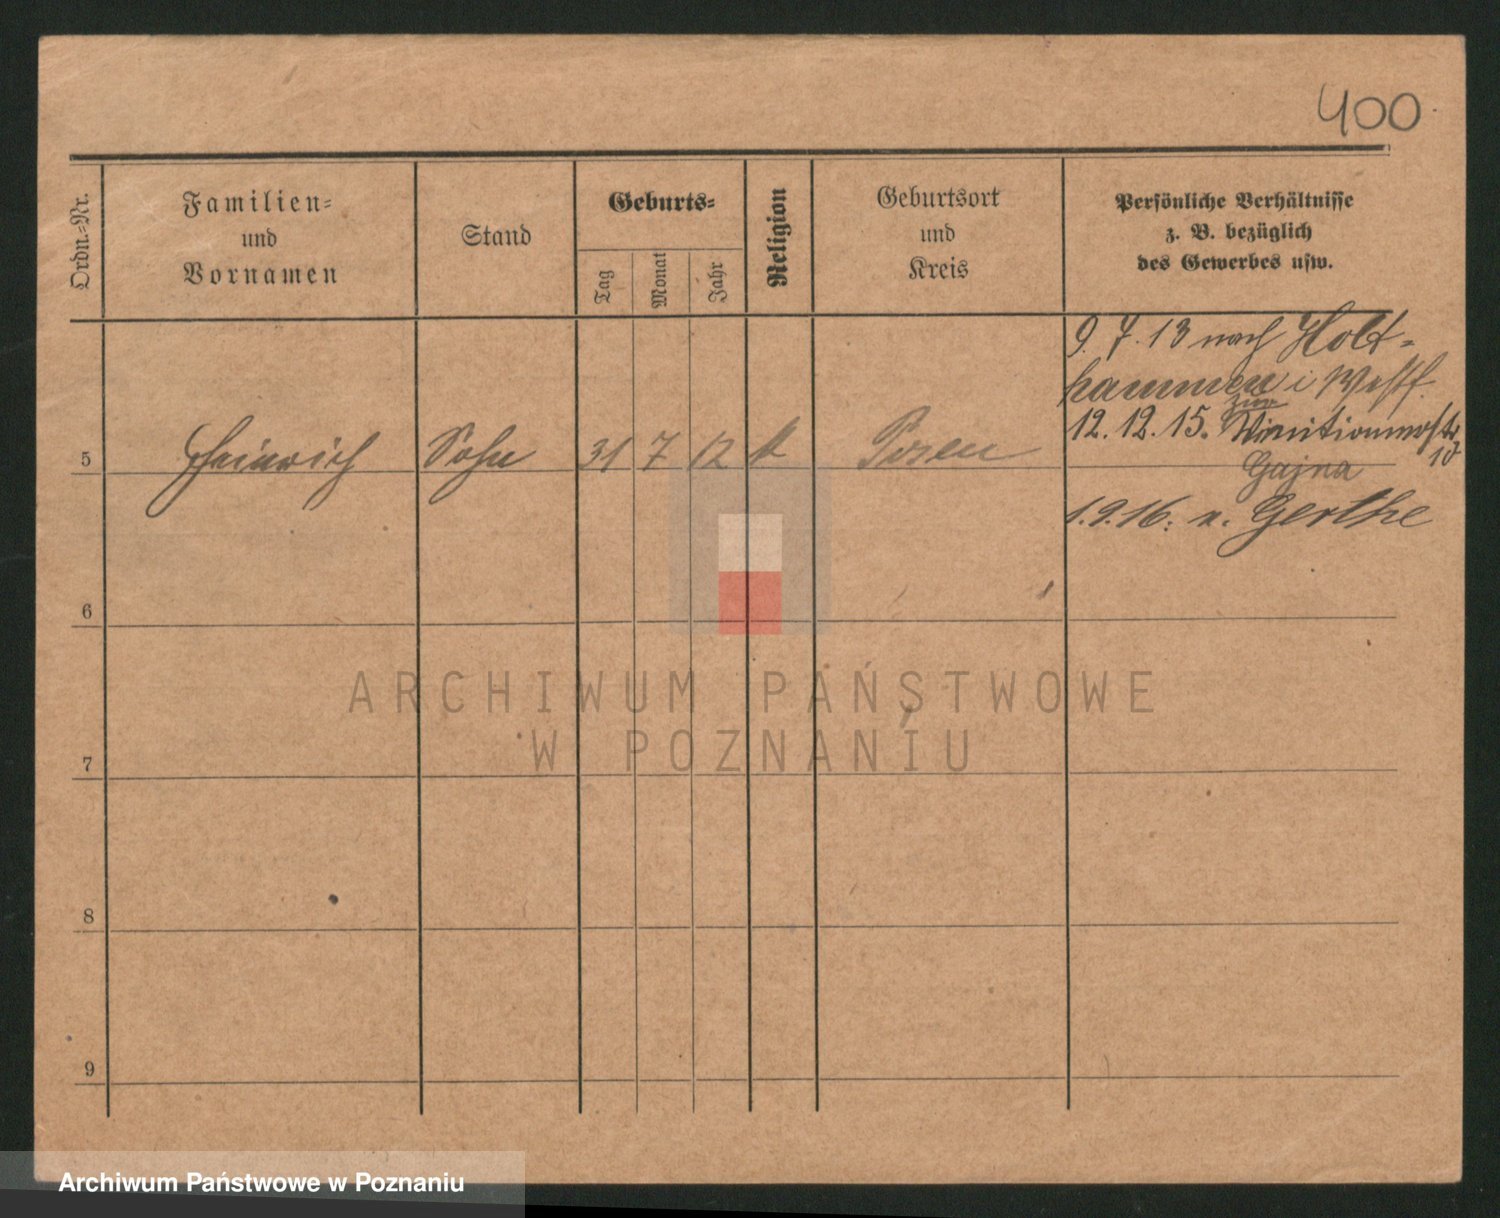 400
Ordn.-Nr.
Familien-
und
Vornamen
Stand
Geburts-
Tag
Monat
Jahr
Religion
Geburtsort
und
Kreis
Persönliche Verhältnisse
z. B. bezüglich
des Gewerbes usw.
9. 7. 13 nach Holt-
hausen i Westf.
5 Heinrich Sohn 31 7 12 k Posen
12. 12. 15. zur
10
Gajna
1.9.16. n. Gerthe
6
7
8
9
ARCHIWUM PAŃSTWOWE
W POZNANIU
Archiwum Państwowe w Poznaniu